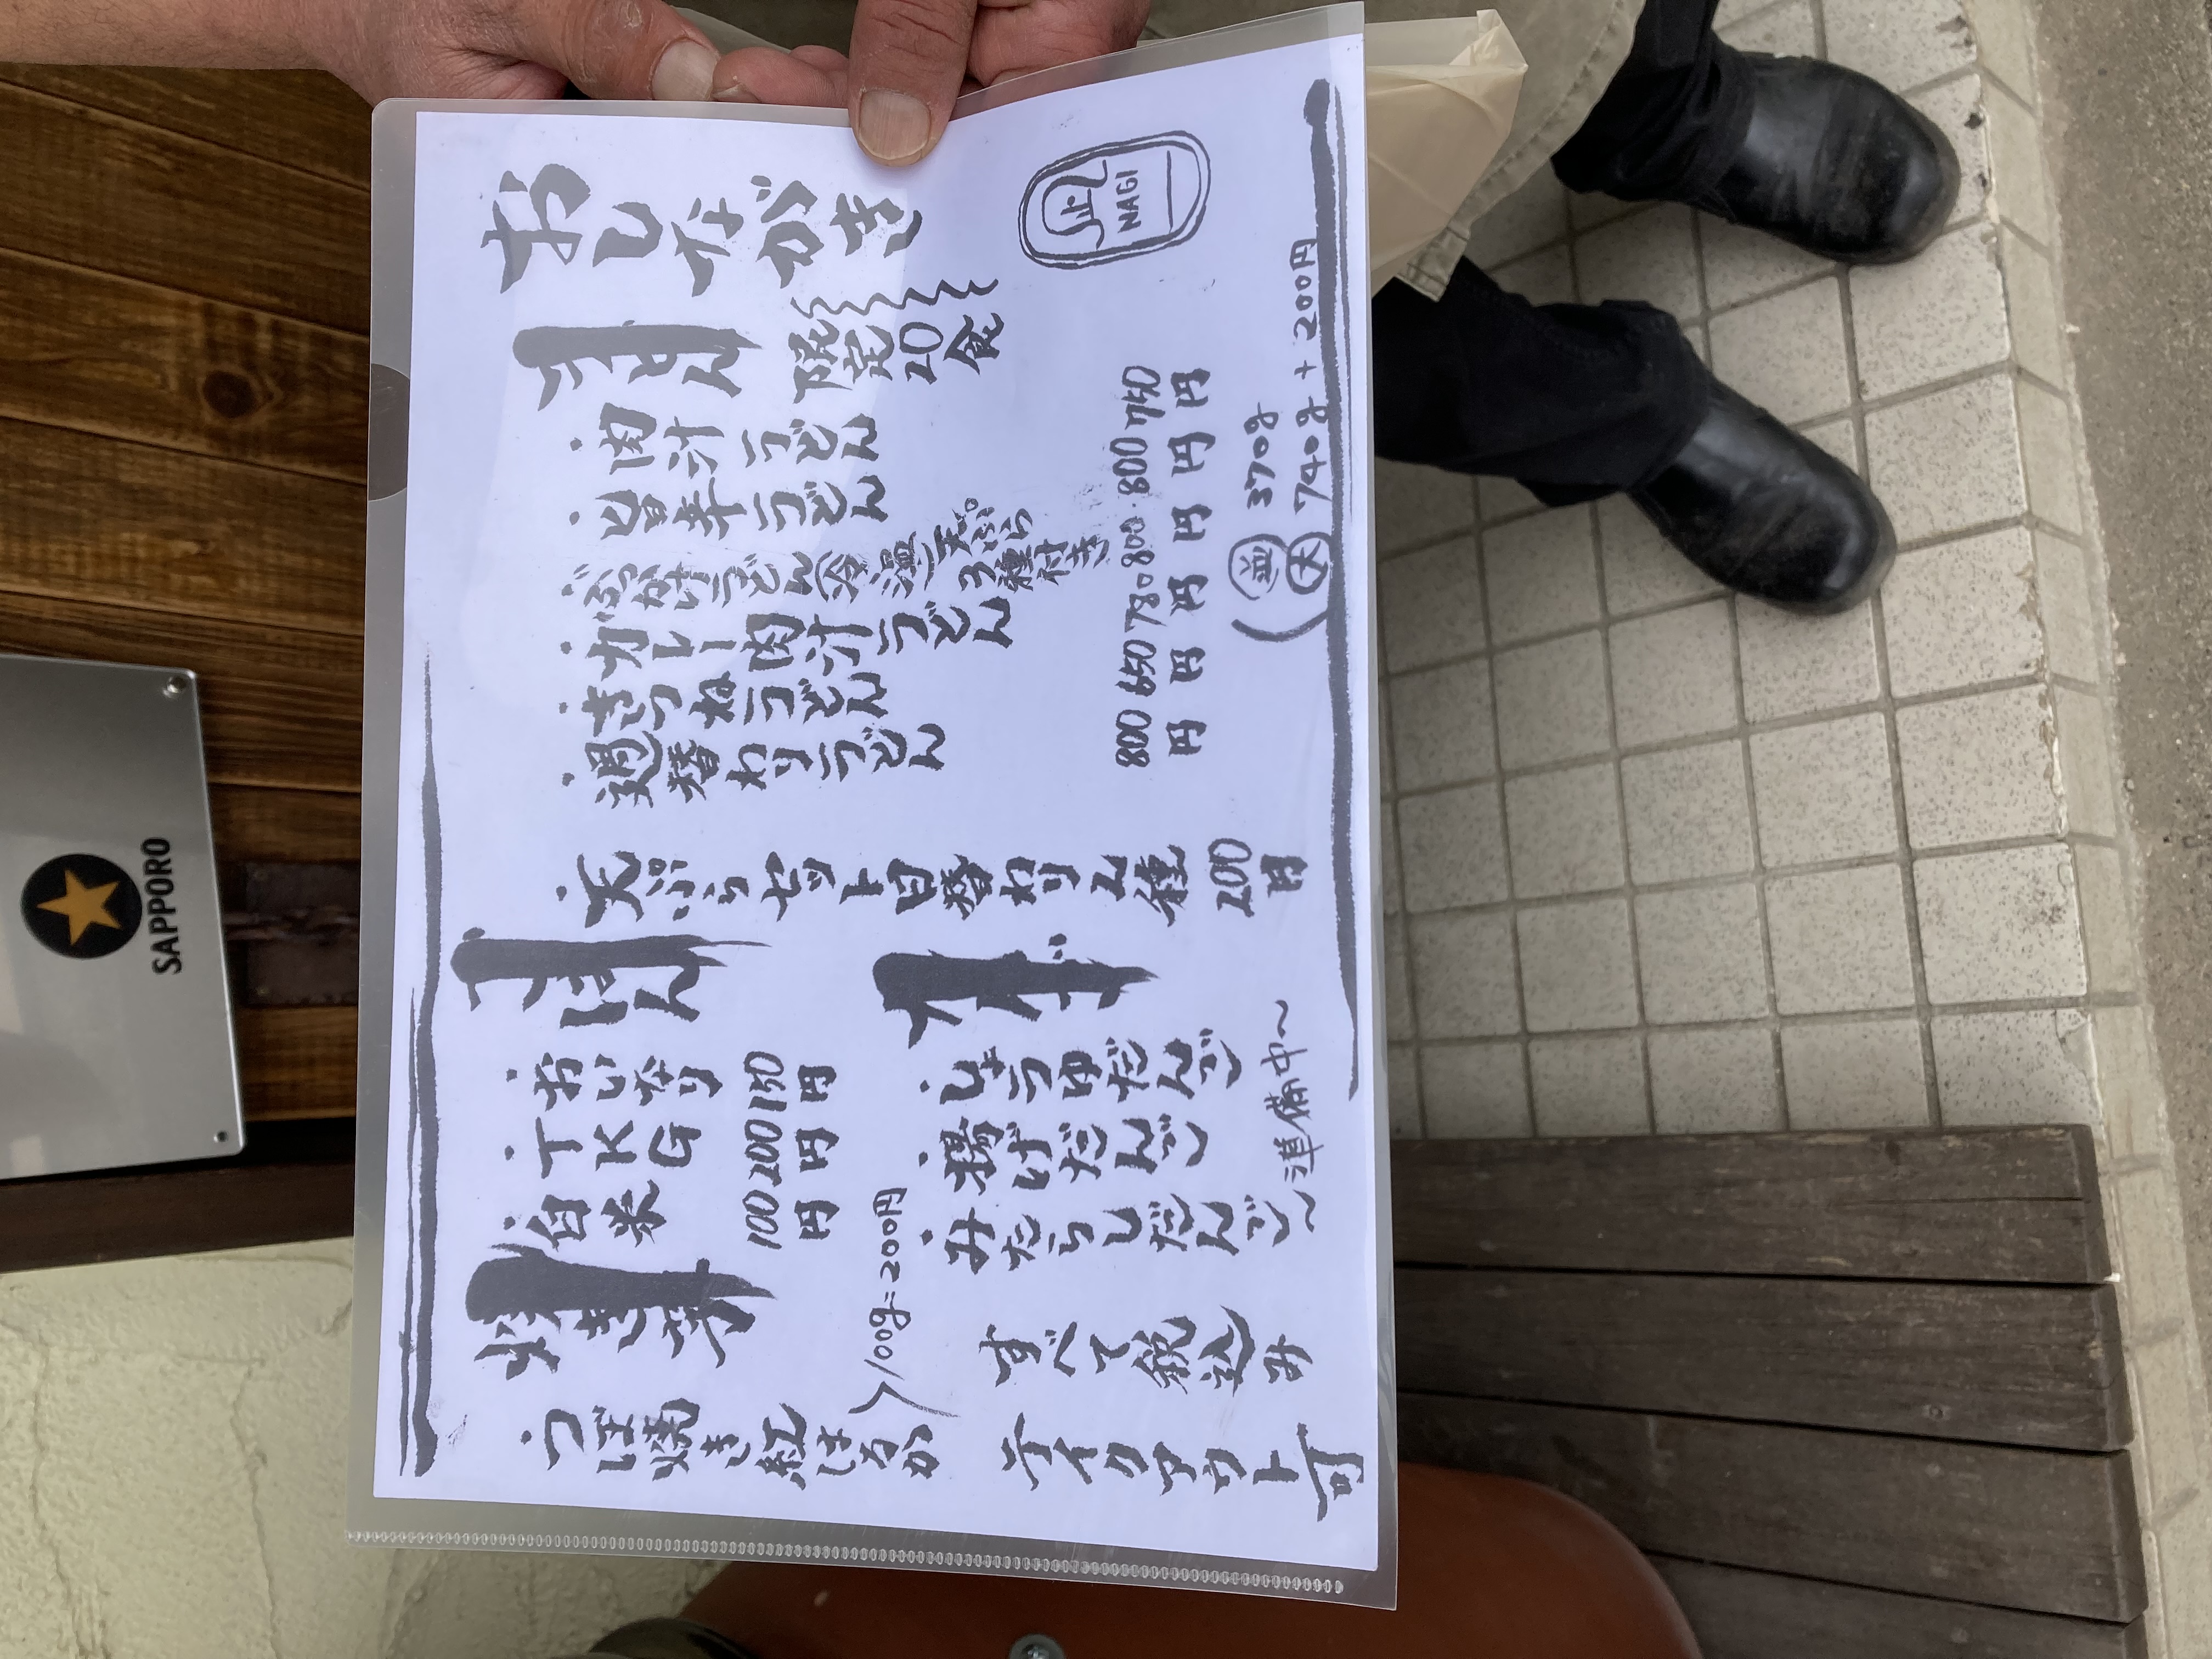 おしながき
NAGI
うどん
限定20食
・肉汁うどん 750円
・旨辛うどん 800円
・ぶっかけうどん(冷・温) 天ぷら3種付き 800円
・カレー肉汁うどん 780円
・きつねうどん 650円
・週替わりうどん 800円
(並 370g
大 740g + 200円
・天ぷらセット日替わり2種 200円
ごはん
・おいなり 150円
・TKG 200円
・白米 100円
焼き芋
・つぼ焼き紅はるか
100g=200円
・しょうゆだんご
・揚げだんご
・みたらしだんご
～準備中～
すべて税込み
テイクアウト可
SAPPORO